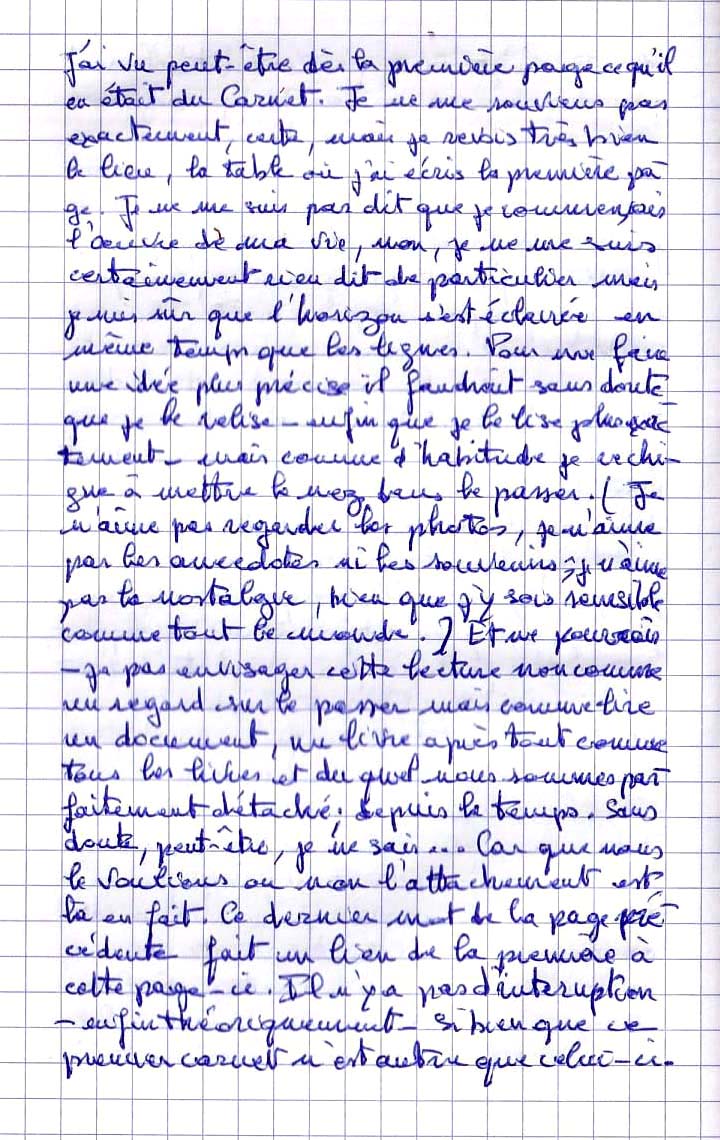 J'ai vu peut-être dès la première page ce qu'il
en était du Carnet. Je ne me souviens pas
exactement, certe, mais je revois très bien
le lieu, la table où j'ai écris la première pa
ge. Je ne me suis pas dit que je commençais
l'œuvre de ma vie, non, je ne me suis
certainement rien dit de particulier mais
je suis sûr que l'horizon s'est éclairée en
même temps que les lignes. Pour me faire
une idée plus précise il faudrait sans doute
que je le relise - enfin que je le lise plus
tement - mais comme d'habitude je rechi-
gne à mettre le nez dans le passer. ( Je
n'aime pas regarder les photos, je n'aime
pas les anecdotes ni les souvenirs, je n'aime
pas la nostalgie, bien que j'y sois sensible
comme tout le monde. ) Et ne pourrais
- je pas envisager cette lecture non comme
un regard sur le passer mais comme lire
un document, un livre après tout comme
tous les livres et du quel nous sommes par
faitement détaché. Depuis le temps. Sans
doute, peut-être, je ne sais... Car que nous
le voulions ou non l'attachement est
là en fait. Ce dernier mot de la page pré
cédente fait un lien de la première à
cette page-ci. Il n'y a pas d'interuption
- enfin théoriquement - si bien que ce
premier carnet n'est autre que celui-ci.